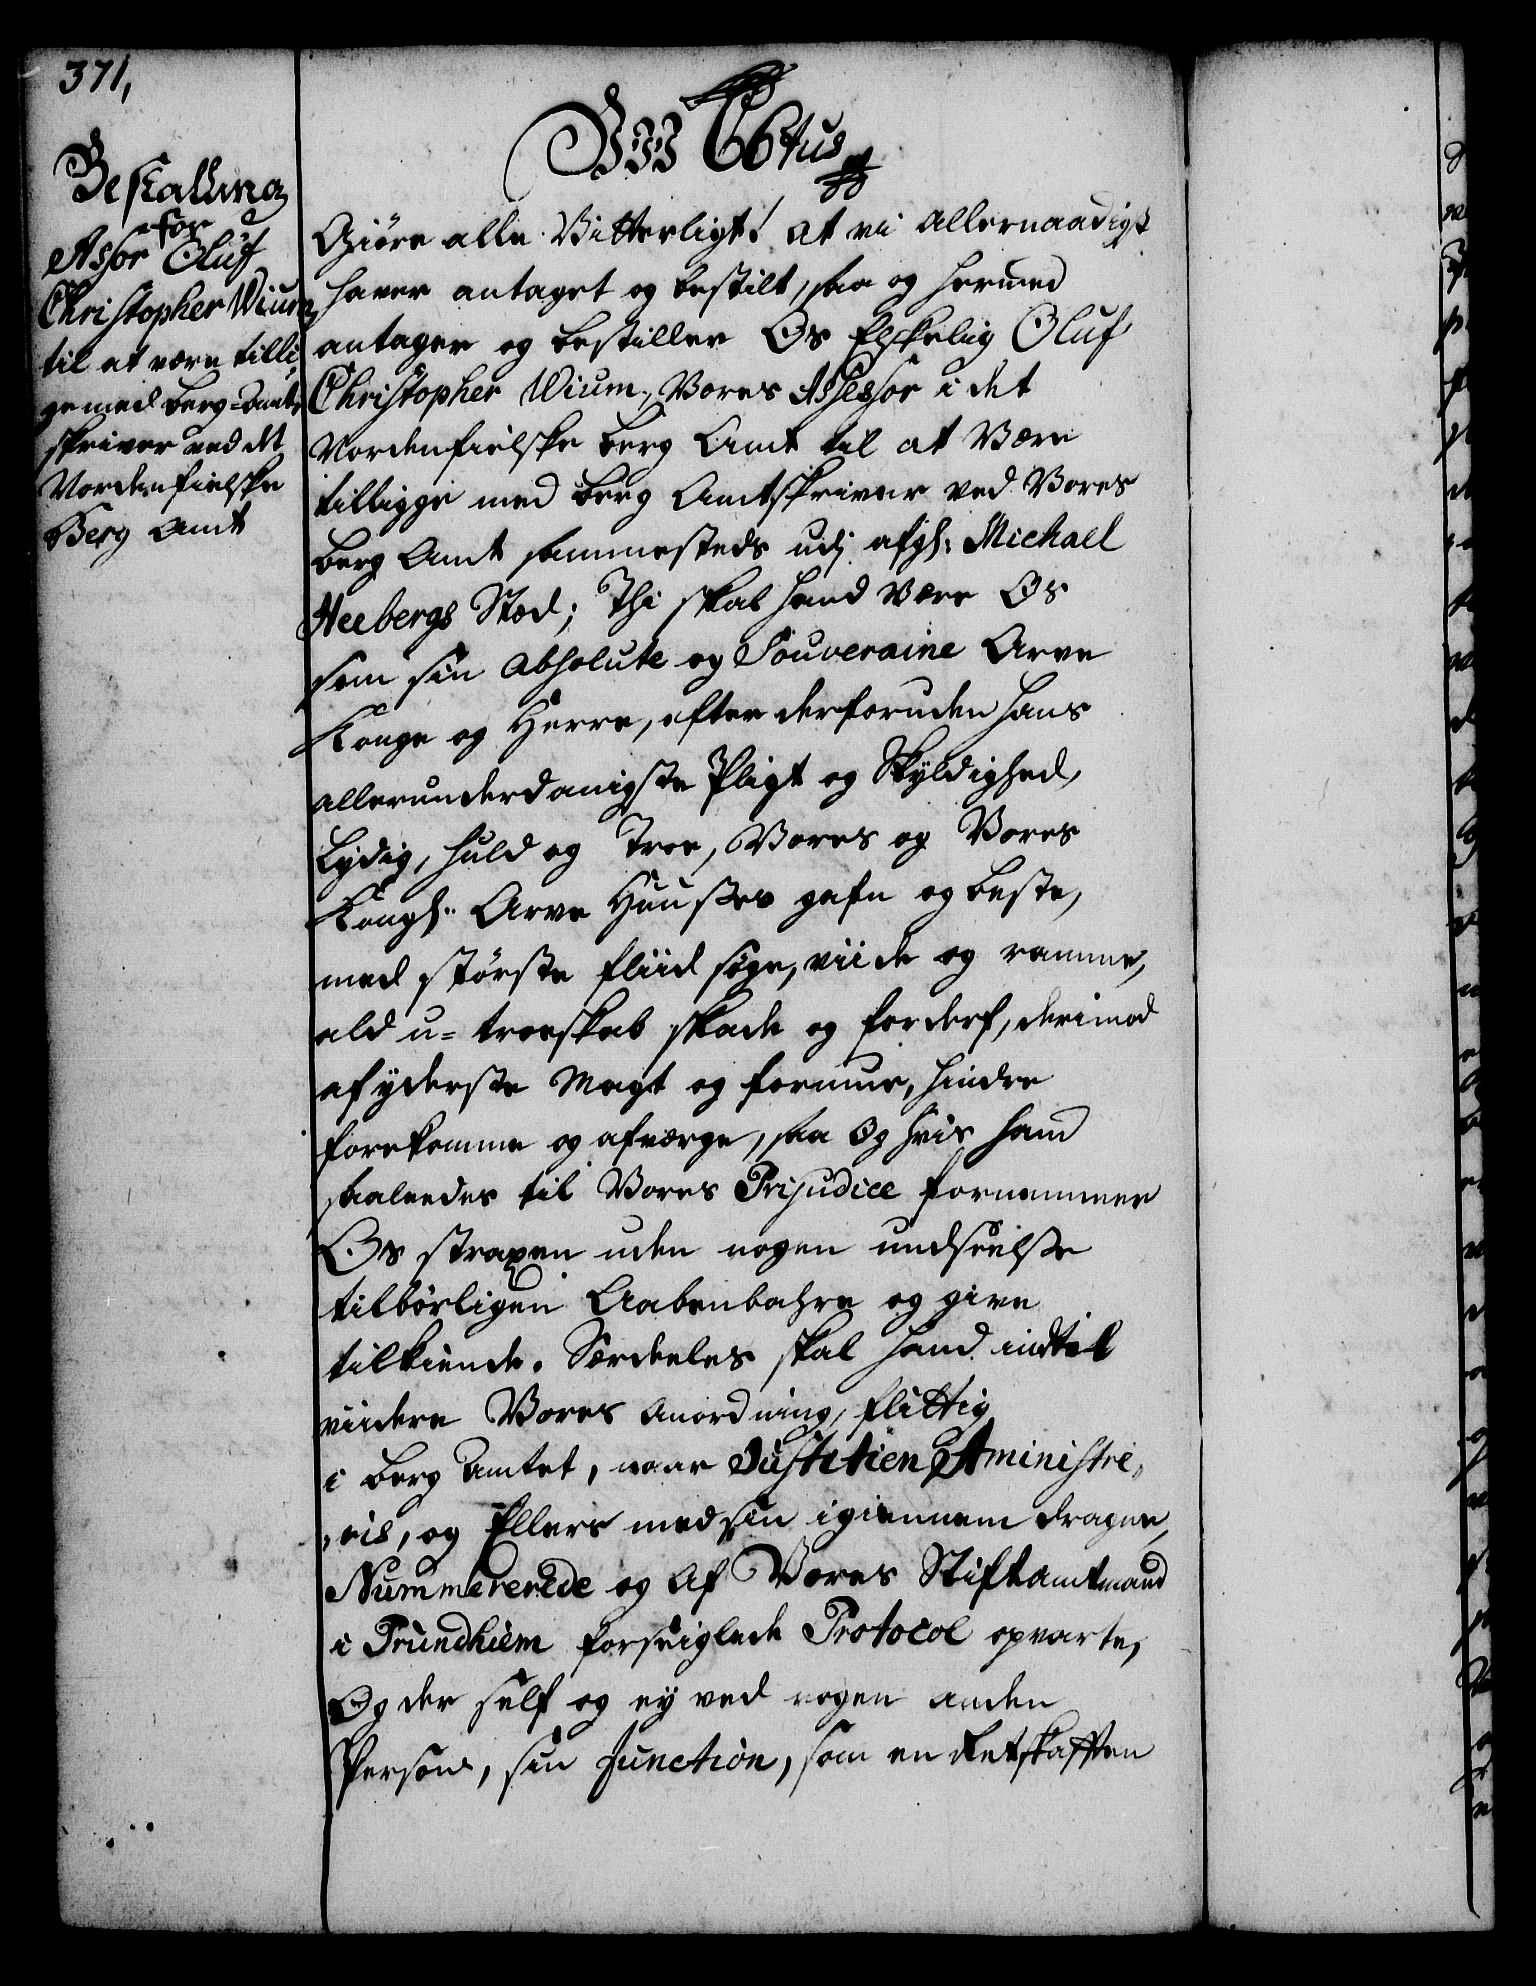 371,
Bestalling
for
Assor Oluf
Christopher Wium
til at være tilli,
ge med Berg-Amt,
skriver ved det
Nordenfielske
Berg Amt
Tottus
Giøre alle Vitterligt! at vi allernaadigst
haver antaget og bestilt, saa og hermed
antager og bestiller Os Elskelig Oluf
Christopher Wium, Vores Assessor i det
Nordenfielske Berg Amt til at Være
tilligge med Berg Amtskriver ved Vores
Berg Amt sammesteds udj afgl: Michael
Heebergs Stæd; Thi skal hand være Os
som sin absolute og Souveraine Arve
Konge og Herre, efter derforuden hans
allerunderdanigste Pligt og Skyldighed,
Lydig, huld og Troe, Vores og Vores
Kongl: Arve Huusses gafn og beste,
med største fliid søge, viide og ramme,
ald u-troeskab skade og forderf, derimod
af yderste Magt og formue, hindre
forekomme og afværge, saa Og hvis hand
saaleedes til Vores Prijudice fornemmer
Os straxen uden nogen undseelse
tilbørligen Aabenbahre og give
tilkiende. Særdeeles skal hand indtil
viidere Vores Anordning, flittig
i Berg Amtet, naar Justitien Aministre,
,ris, og Ellers med sin igiennem dragne,
Nummererede og Af Vores Stiftamtmand
i Trundhiem forseiglede Protocol opvarte,
Og der self og ey ved nogen anden
Person, sin function, som en Retskaffen